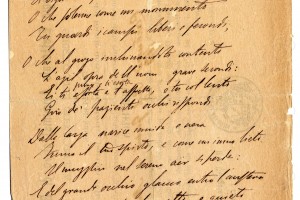 O che solenne come un monumento
Tu guardi i campi liberi e fecondi,
O che al giogo inchinandoti contento
L'agil opra de l'uom grave secondi:
Ei t' e tu col lento
Giro de' pazienti occhi rispondi
Dalla larga narice umida e nera
Fuma il tuo spirto, e come un inno lieto
Il mugghio nel sereno aer si perde:
E del grande occhio glauco entro l'austera
quieto